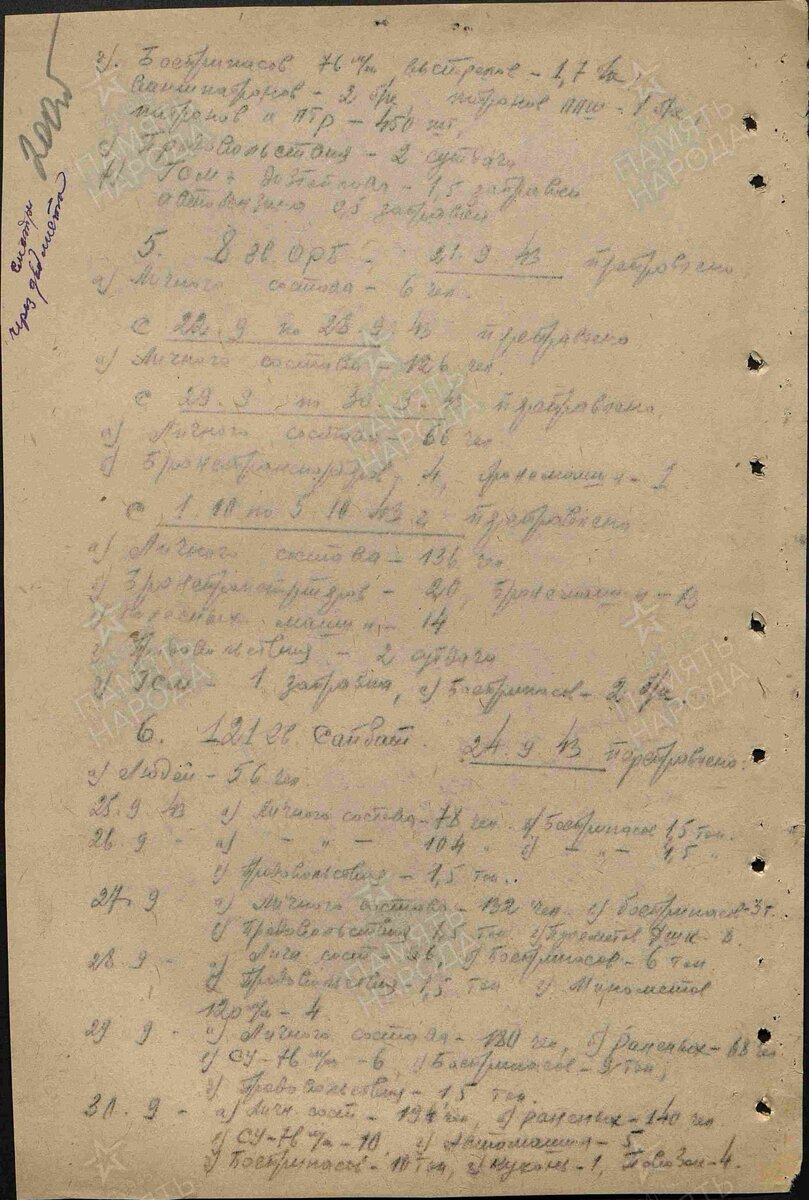 смотри
через два листа
г). Боеприпасов 76 м/м выстрелов - 1,7 б/к,
патронов - 2 б/к, патронов ППШ - 1 б/к,
патронов к ПТР - 450 шт,
Продовольствия - 2 сутдачи
ГСМ: дизтоплива - 1,5 заправки
автобензина 0,5 заправки
5. 8 гв. ОРБ - 21. 9. 43 переправлено
а) Личного состава - 6 чел.
С 22. 9 по 28. 9. 43 переправлено
а) Личного состава - 126 чел.
С 29. 9 по 30. 9. 43 переправлено
а) Личного состава - 66 чел
б) Бронетранспортеров - 4, бронемашин - 1
С 1. 10 по 5. 10. 43 г. переправлено
а) Личного состава - 136 чел
б) Бронетранспортеров - 20, Бронемашин - 13
в) колесных машин - 14
г) Продовольствия - 2 сутдачи
д) ГСМ - 1 заправка, е) Боеприпасов - 2 б/к.
6. 121 гв. Сапбат. 24. 9 43 переправлено:
а) Людей - 56 чел.
25. 9 43 а) Личного состава - 78 чел б) Боеприпасов 1,5 тон.
26. 9 - а) - " - 104 " б) - " - 1,5 "
в) Продовольствия - 1,5 тон.
27. 9 а) Личного состава - 132 чел б) Боеприпасов - 3 т.
в) Продовольствия 1,5 тон г) Пулеметов ДШК - 8.
28. 9 - а) Личн. сост - 96, б) Боеприпасов - 6 тон
в) Продовольствия - 1,5 тон г) Минометов
120 м/м - 4.
29 9 - а) Личного состава - 180 чел, б) Раненых - 68 чел
в) СУ-76 м/м - 6, г) Боеприпасов - 9 тон,
д) Продовольствия - 1,5 тон.
30. 9 - а) Личн. сост - чел, б) раненых - 140 чел
в) СУ-76 м/м - 10 г) Автомашин - 5
д) Боеприпасов - 10 тон, е) кухонь - 1, Повозок - 4.
ПАМЯТЬ
НАРОДА